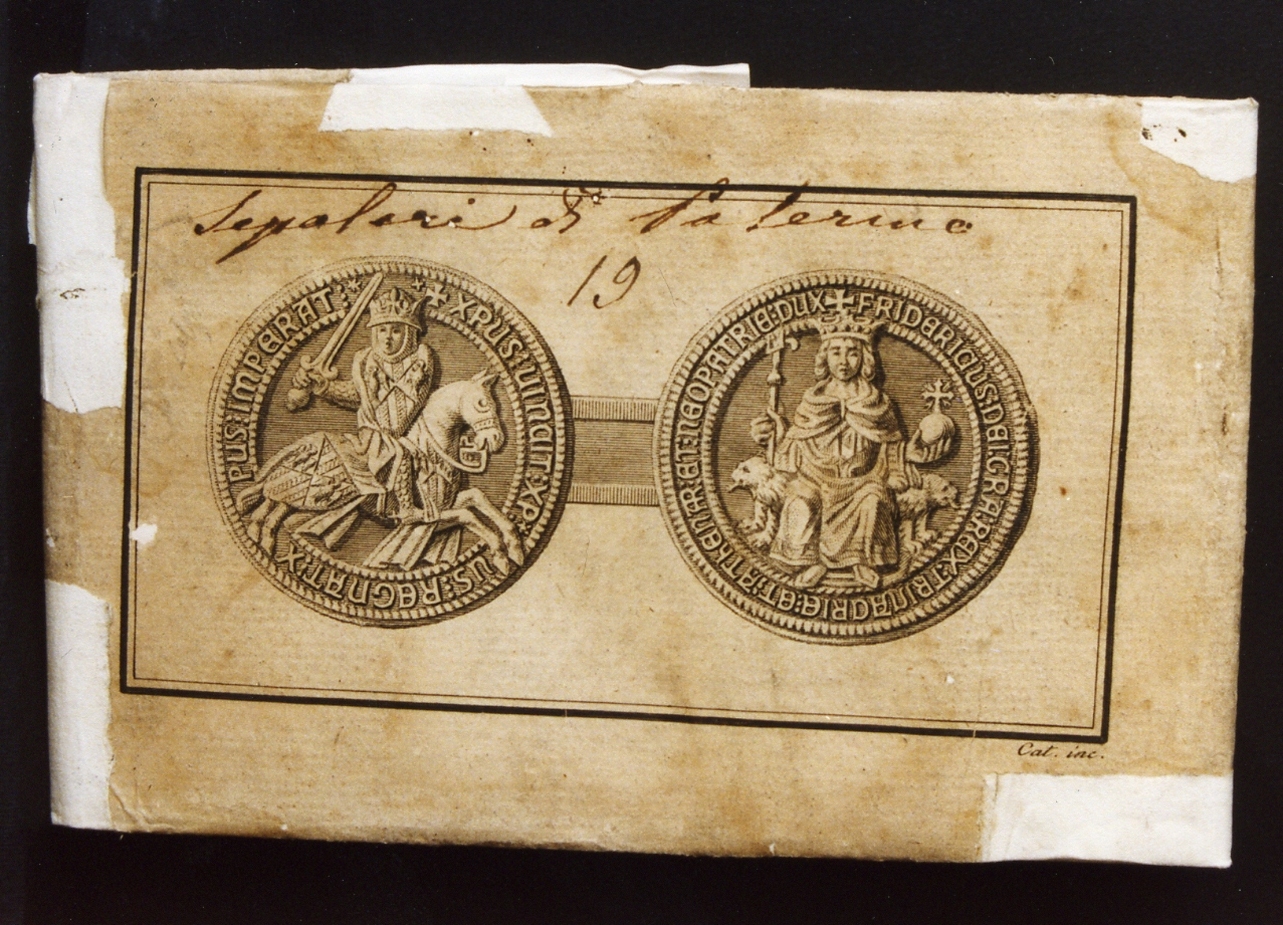 Sepolcri di Palermo
19
✠ XPUS : UINCIT : XP : US : REGNAT : X PUS : IMPERAT :
✠ FRIDERICUS : DEI : GRA : REX : TRINACRIE : ET : ATHENAR : ET : NEOPATRIE : DUX
Cat. inc.